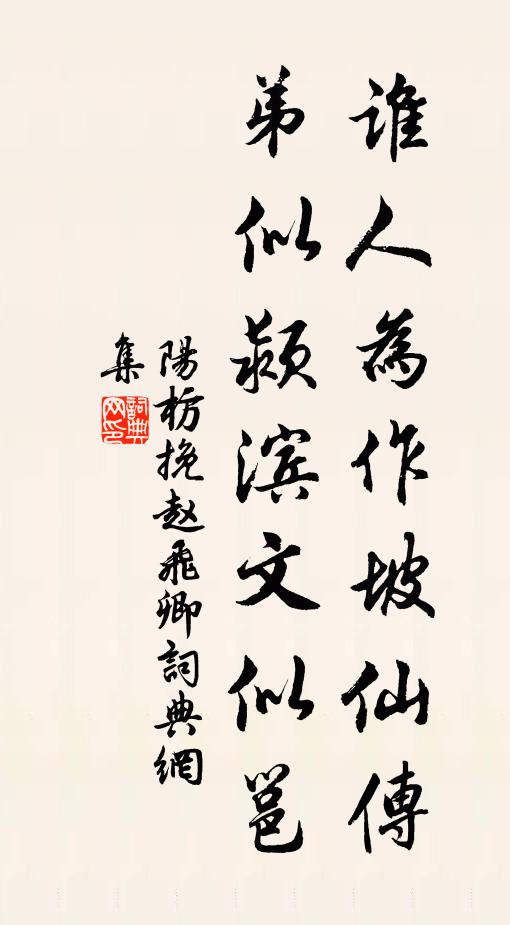 誰人為作坡仙傳
弟似潁滨文似邕
陽枋挽赵飛卿詞典網
集
詞典网印